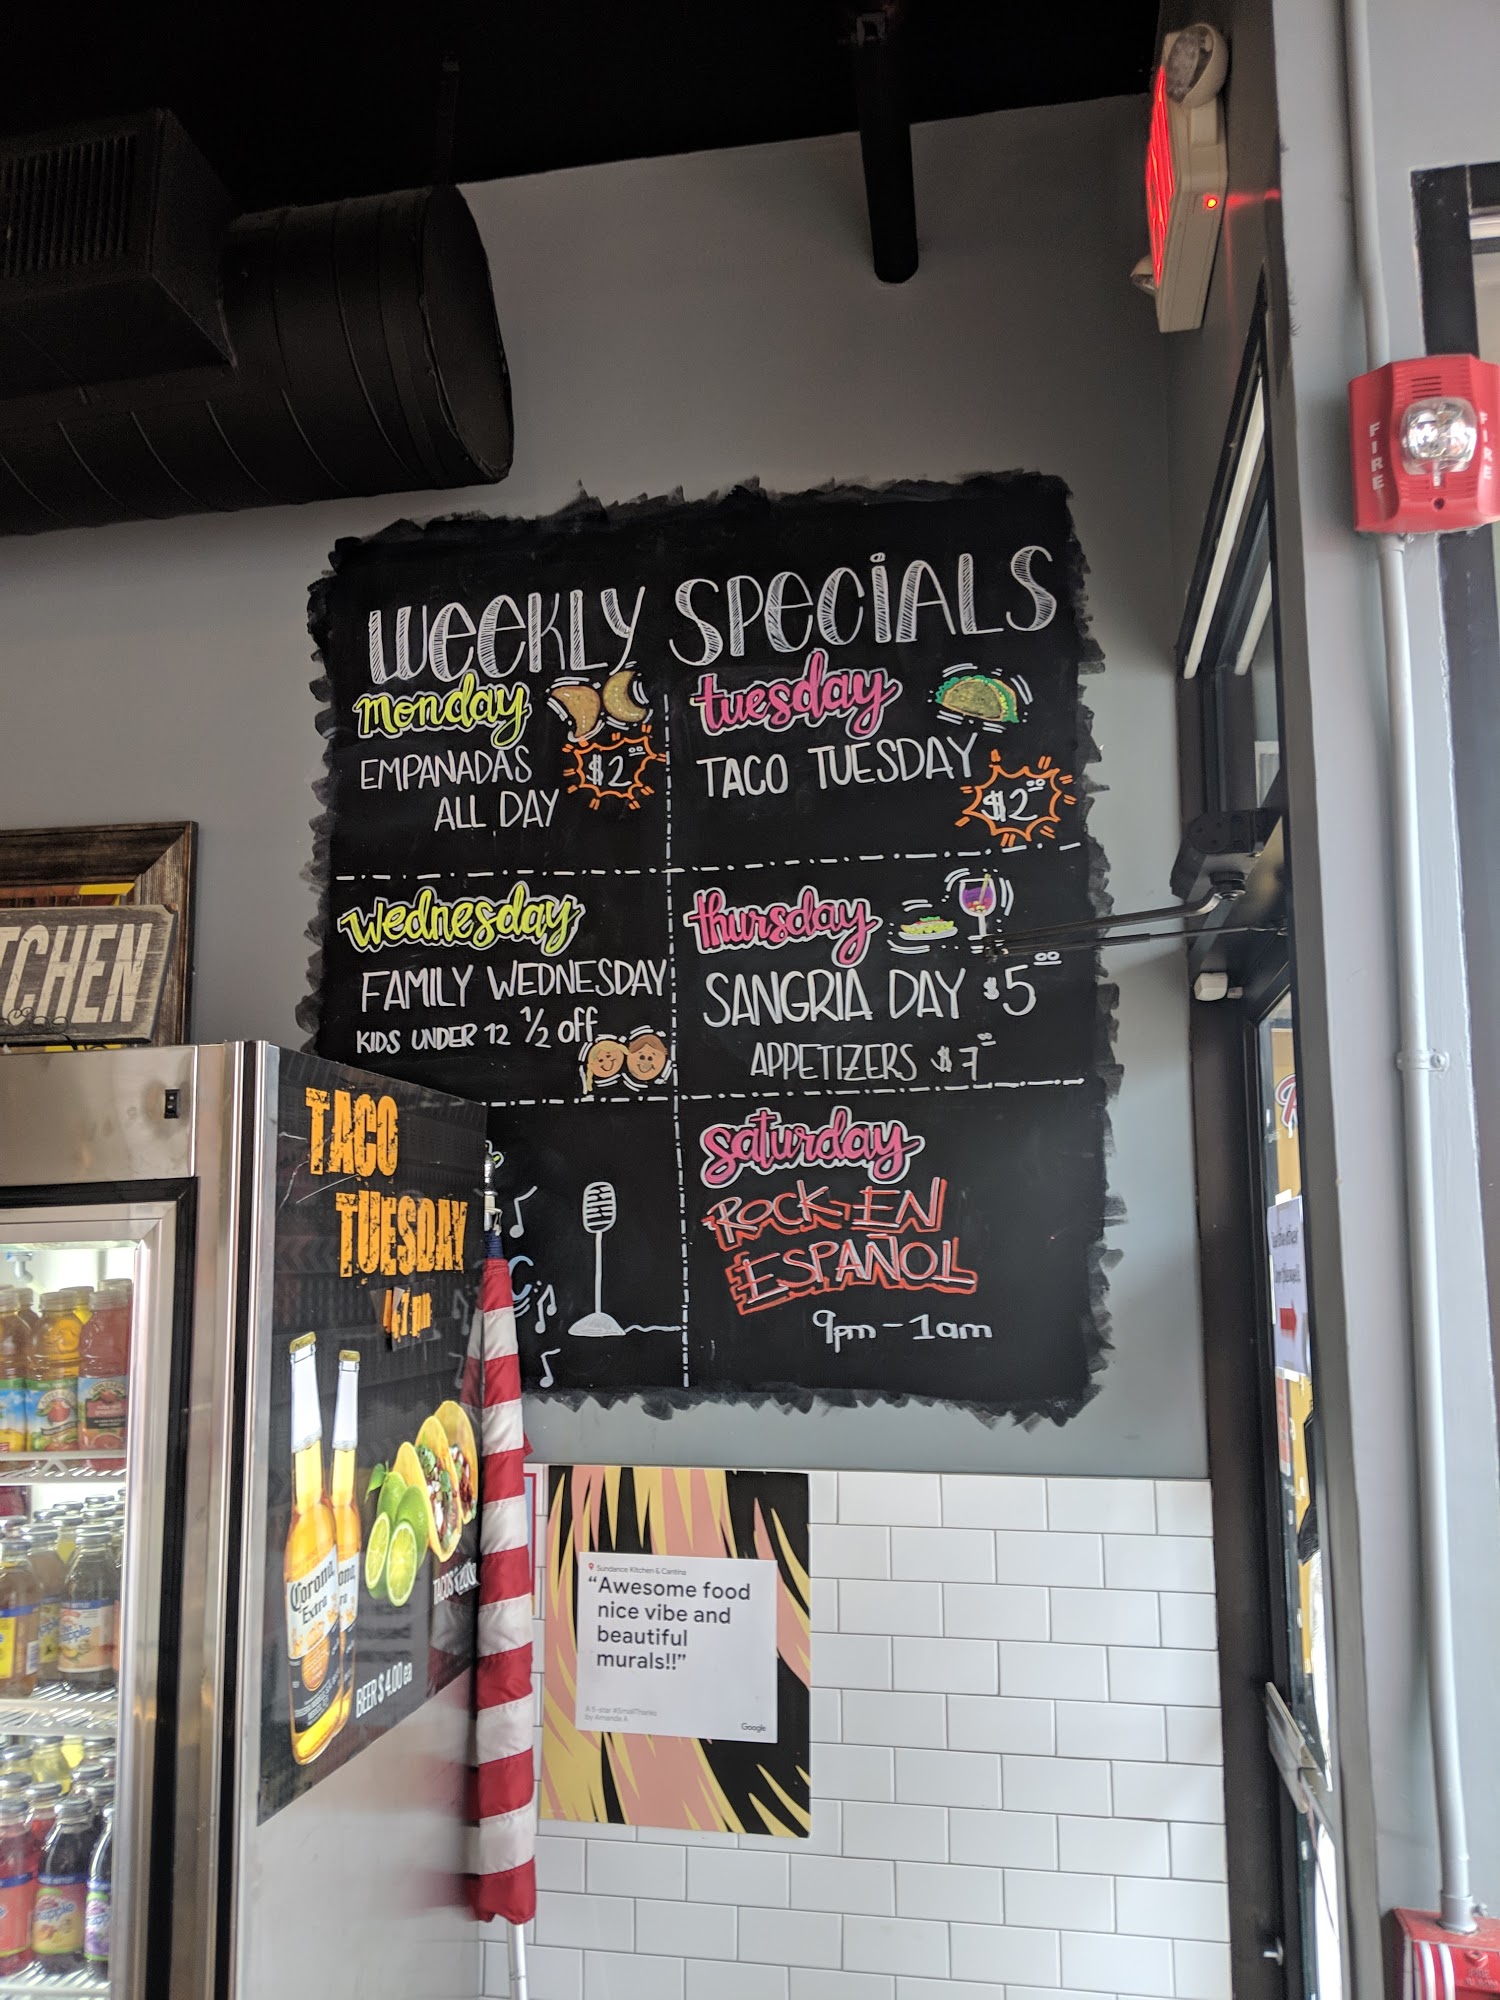 WEEKLY SPECIALS
monday
EMPANADAS
ALL DAY
$2.00
tuesday
TACO TUESDAY
$2.00
wednesday
FAMILY WEDNESDAY
KIDS UNDER 12 1/2 off
thursday
SANGRIA DAY $5.00
APPETIZERS $7.00
saturday
ROCK EN
ESPAÑOL
9pm - 1am
TCHEN
TACO
TUESDAY
Corona
Extra
BEER $4.00 ea
TACOS
Sundance Kitchen & Cantina
“Awesome food
nice vibe and
beautiful
murals!!”
A 5-star #SmallThanks
by Amanda A
Google
FIRE
FIRE